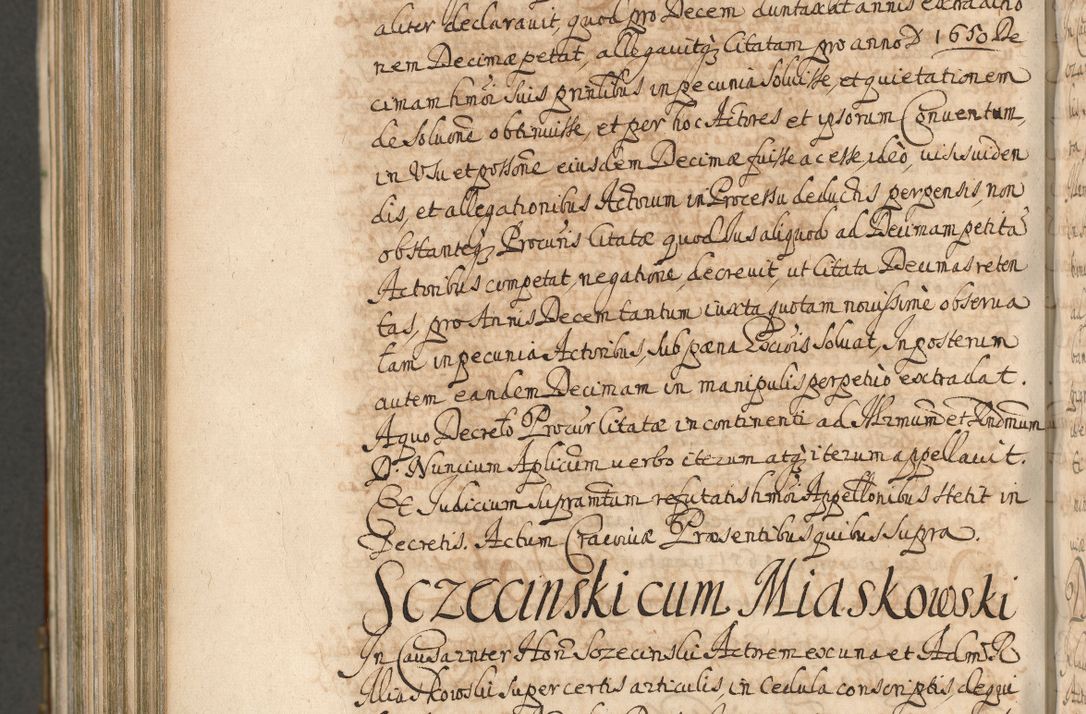 aliter declarauit, quod pro Decem duntaxat annis extraditio
nem Decimæ petat, allegauitq₃ Citatam pro anno D 1650 De
cimam hmōi suis prīntibus in pecunia soluisse, et quietationem
de solutnē obtinuisse, et per hoc Actores et ipsorum Conuentum,
in Vsu et possnē eiusdem Decimæ fuisse ac esse, ideò, uisis uiden
dis, et allegationibus Actorum in Processu deductis pergensis, non
obstanteq₃ Procuris Citatæ quod Ius aliquod ad Decimam petitā
Actoribus competat, negatione, decreuit, ut Citata Decimas reten
tas, pro Annis Decem tantum iuxta quotam nouissimè obserua
tam in pecunia Actoribus, sub pæna Excōis soluat, In posterum
autem eandem Decimam in manipulis perpetuò extradat.
A quo Decreto Procur Citatæ in continenti ad Illrmum et Rndmum
D. Nuncium Aplicum uerbo iterum atq₃ iterum appellauit.
Et Iudicium supramtum refutatis hmōi Appellonibus stetit in
Decretis. Actum Cracouiæ Præsentibus quibus supra.
Sczecinski cum Miaskowski
In Causa inter Hon Sczecinski Actorem ex una et Adm R
Miaskowski super certis articulis, in Cedula conscriptis, deq₃ui